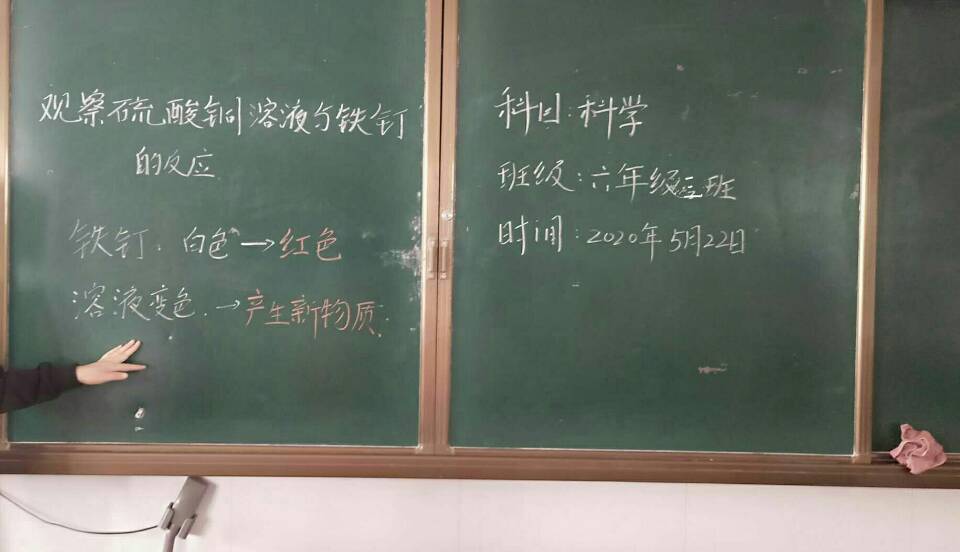 观察硫酸铜溶液与铁钉
的反应
铁钉:白色→红色
溶液变色.→产生新物质.
科目:科学
班级:六年级三班
时间:2020年5月22日